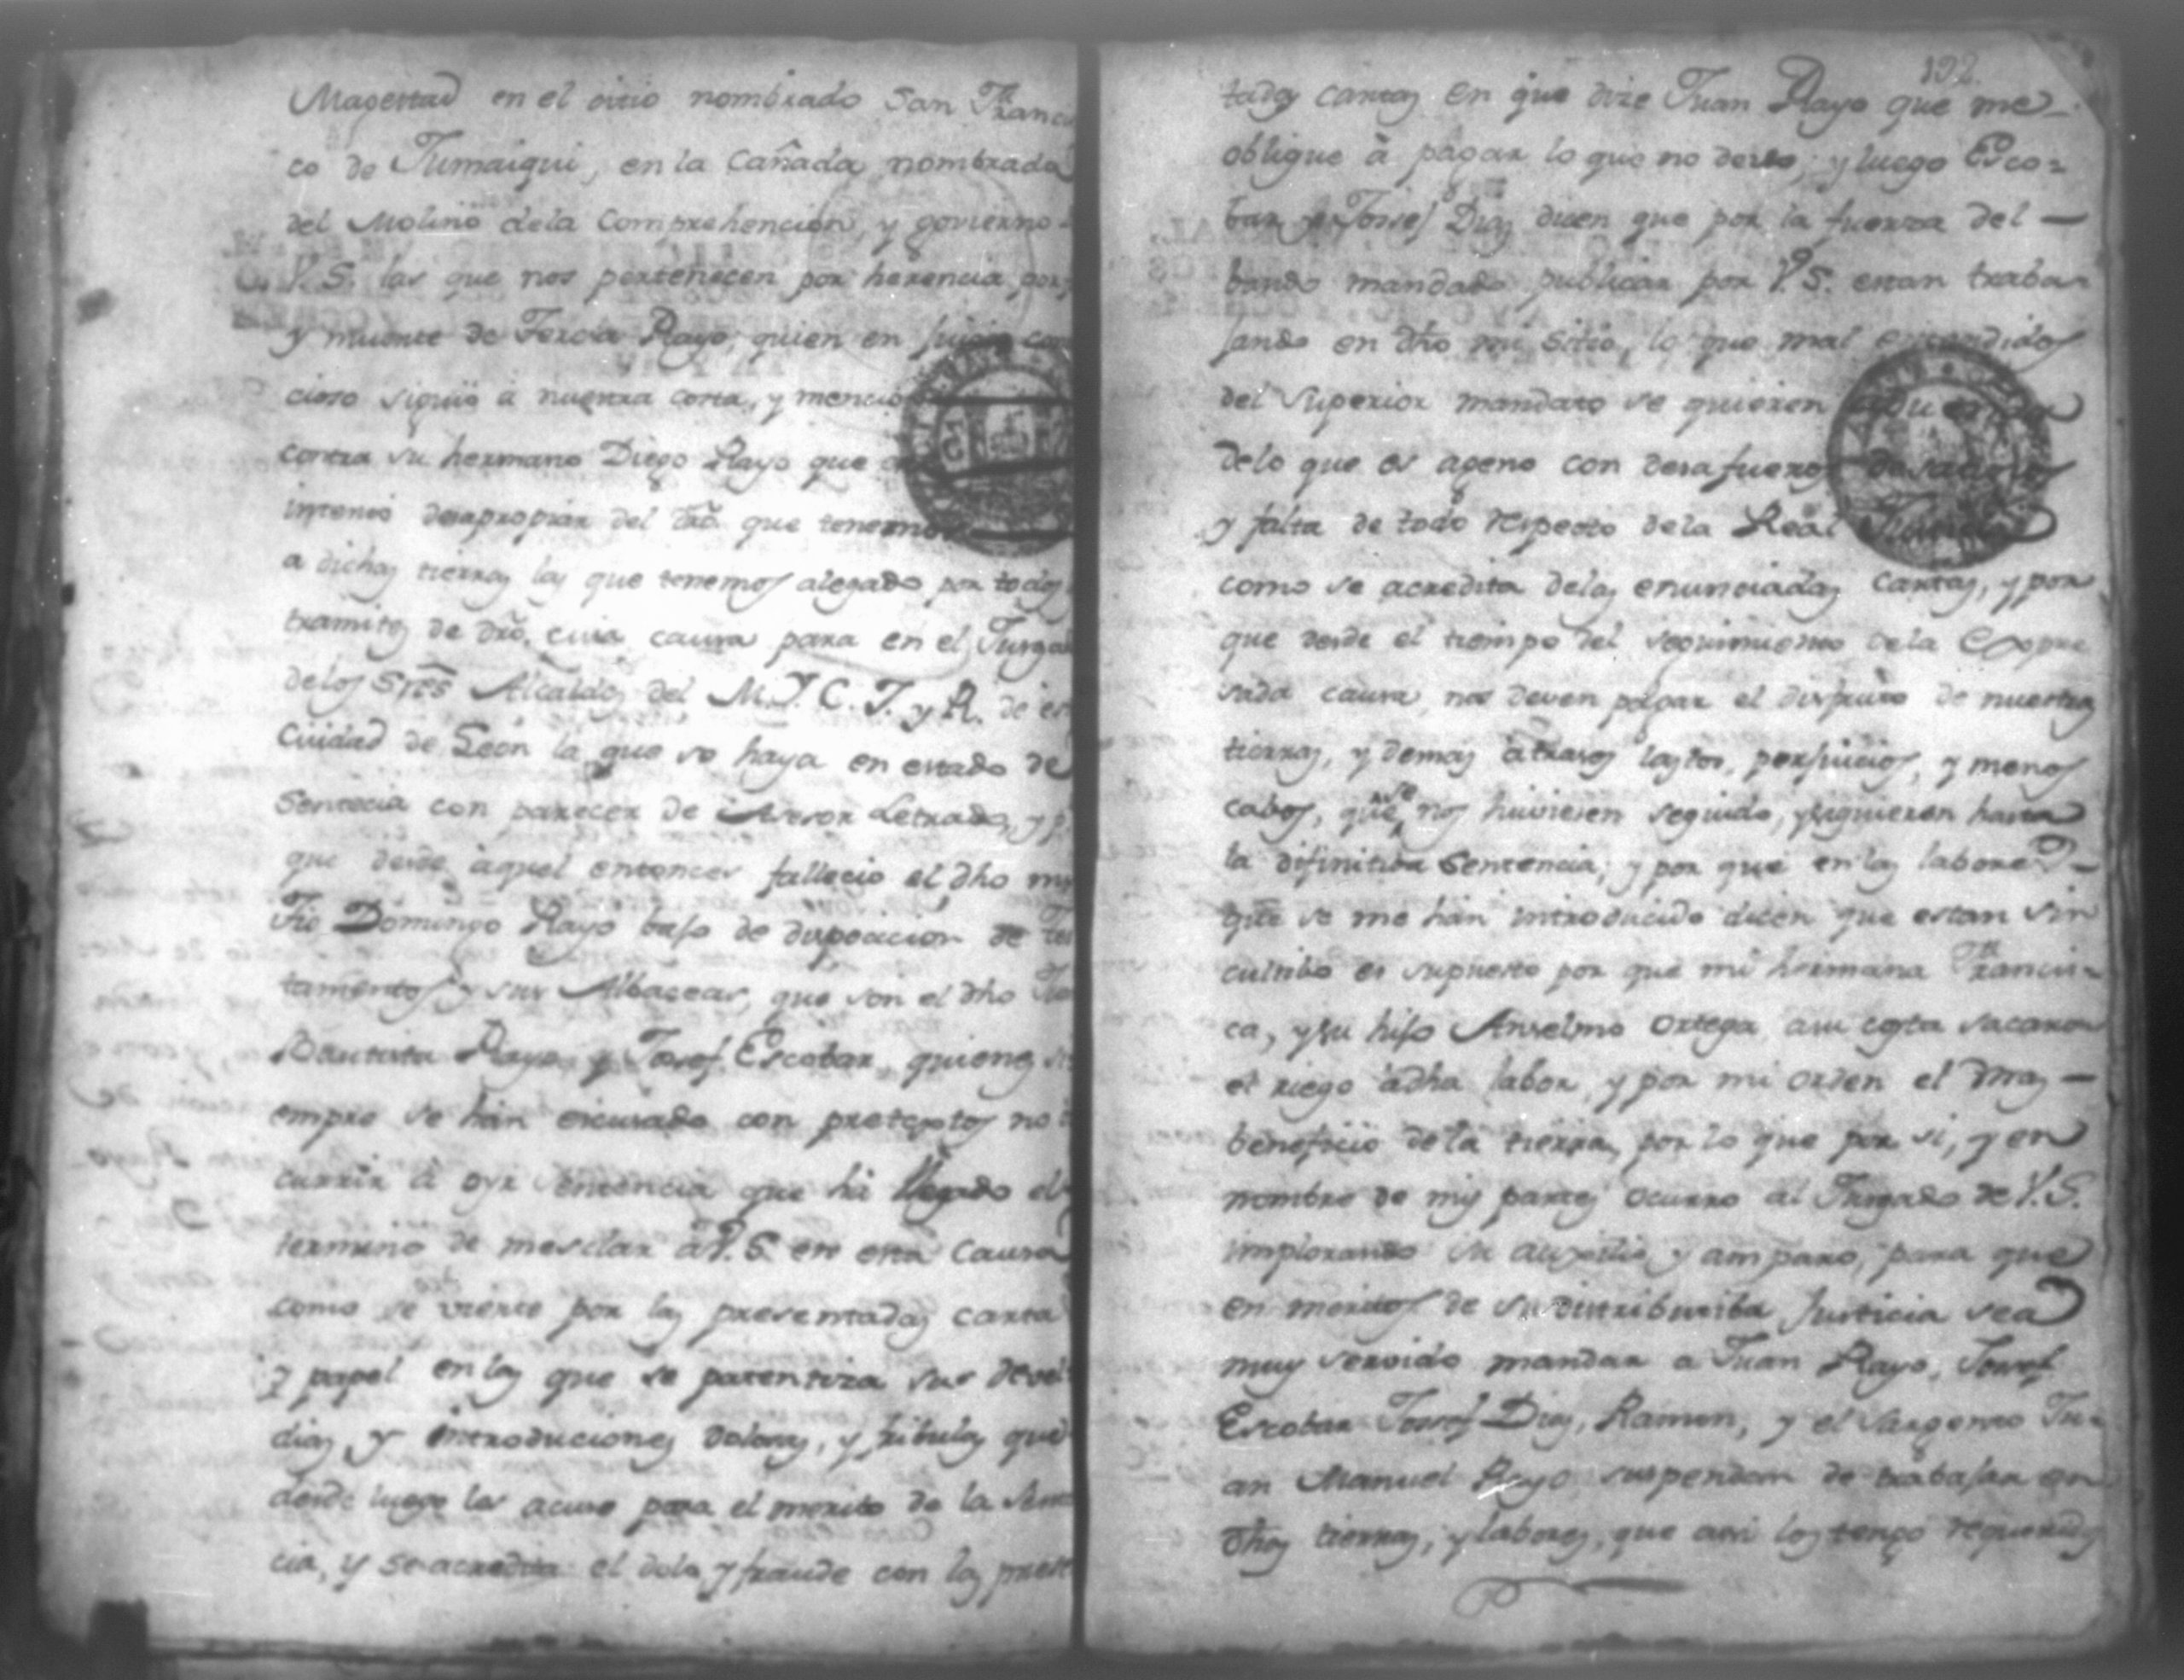 Magestad en el citio nombrado San Franci
co de Tumaiqui, en la Cañada nombrada
del Molino dela Comprehencion, y govierno
V.S. las que nos pertenecen por herencia, por
y muerte de Tercia Rayo, quien en juicio con
cioso siguio à nuestra costa, y mencio
contra su hermano Diego Rayo que
intento desapropiar del dro. que tenemos
a dichas tierras las que tenemos alegado por todos
tramites de dro. cuia causa para en el Jusga
delos Sres Alcaldes del M.I.C.J. y R. de es
Ciuidad de Leon la que se haya en estado de
Sentecia con parecer de Asesor Letrado, y p
que desde aquel entonces fallecio el dho mi
Tio Domingo Rayo bajo de dispocicion de tes
tamentos y sus Albaceas, que son el dho Jua
Bautista Rayo, y Josef Escobar, quienes si
empre se hàn escusado con pretextos no
currir à oyr Sentencia que hà llegado el
termino de mesclar àV.S. en esta Causa
como se vierte por las presentadas carta
y papel en las que se patentiza sus
dias, y introduciones dolosas, y fribulas que
desde luego las acuso para el merito de la Senten
cia, y se acredita el dolo, y fraude con las presen
192.
tadas cartas en que dize Juan Rayo que me
obligue à pagar lo que no devo; y luego Esco-
bar y Josef Dias dicen que por la fuerza del
bando mandado publicar por V.S. estan traba-
jando en dho mi Sitio, lo que mal entendidos
del Superior mandato se quieren
delo que es ageno con desafueros
y falta de todo respecto dela Real
como se acredita delas enunciadas Cartas, y por
que desde el tiempo del seguimiento dela Expre
sada causa, nos deven pagar el disfruto de nuestras
tierras, y demas atrasos lastos, perjuicios, y menos
cabos, que se nos huviesen seguido, y siguieren hasta
la difinitiva Sentencia; y por que en las labores
que se me hàn introducido dicen que estan sin
cultibo es supuesto por que mi hermana Francis-
ca, y su hijo Anselmo Ortega asu costa sacaron
el riego àdha labor, y por mi orden el mas
beneficio dela tierra, por lo que por si, y en
nombre de mis partes ocurro al Jusgado de V.S.
implorando su auxilio, y amparo, para que
en meritos de su distributiba Justicia sea
muy servido mandar a Juan Rayo, Josef
Escobar Josef Dias, Ramon, y el Sargento Ju-
an Manuel Rayo suspendan de trabajar en
dhas tierras, y labores, que asi los tengo requeridos